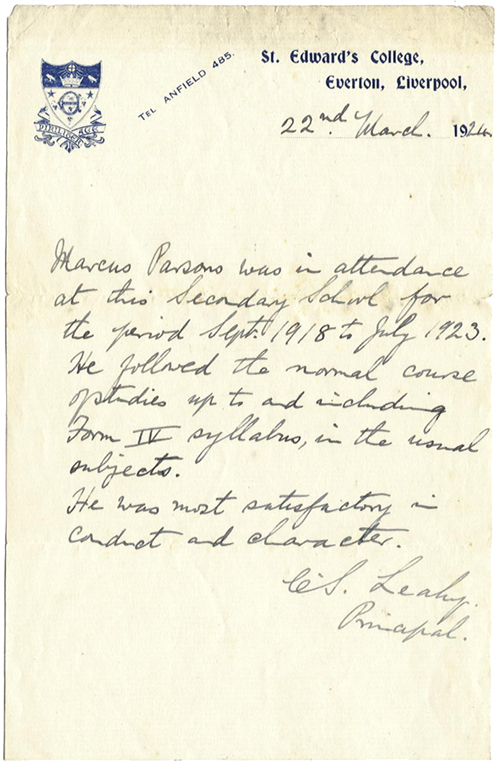 St. Edward's College,
Everton, Liverpool,
TEL ANFIELD 485.
VIRILITER AGE
22nd. March. 1924
Marcus Parsons was in attendance
at this Secondary School for
the period Sept. 1918 to July 1923.
He followed the normal course
of studies up to and including
Form IV syllabus, in the usual
subjects.
He was most satisfactory in
conduct and character.
Leahy.
Principal.